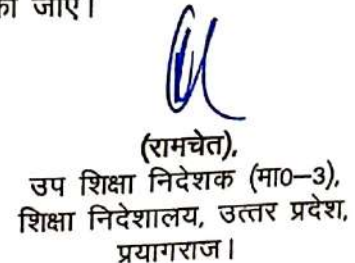 जाए।
(रामचेत),
उप शिक्षा निदेशक (मा0–3),
शिक्षा निदेशालय, उत्तर प्रदेश,
प्रयागराज।